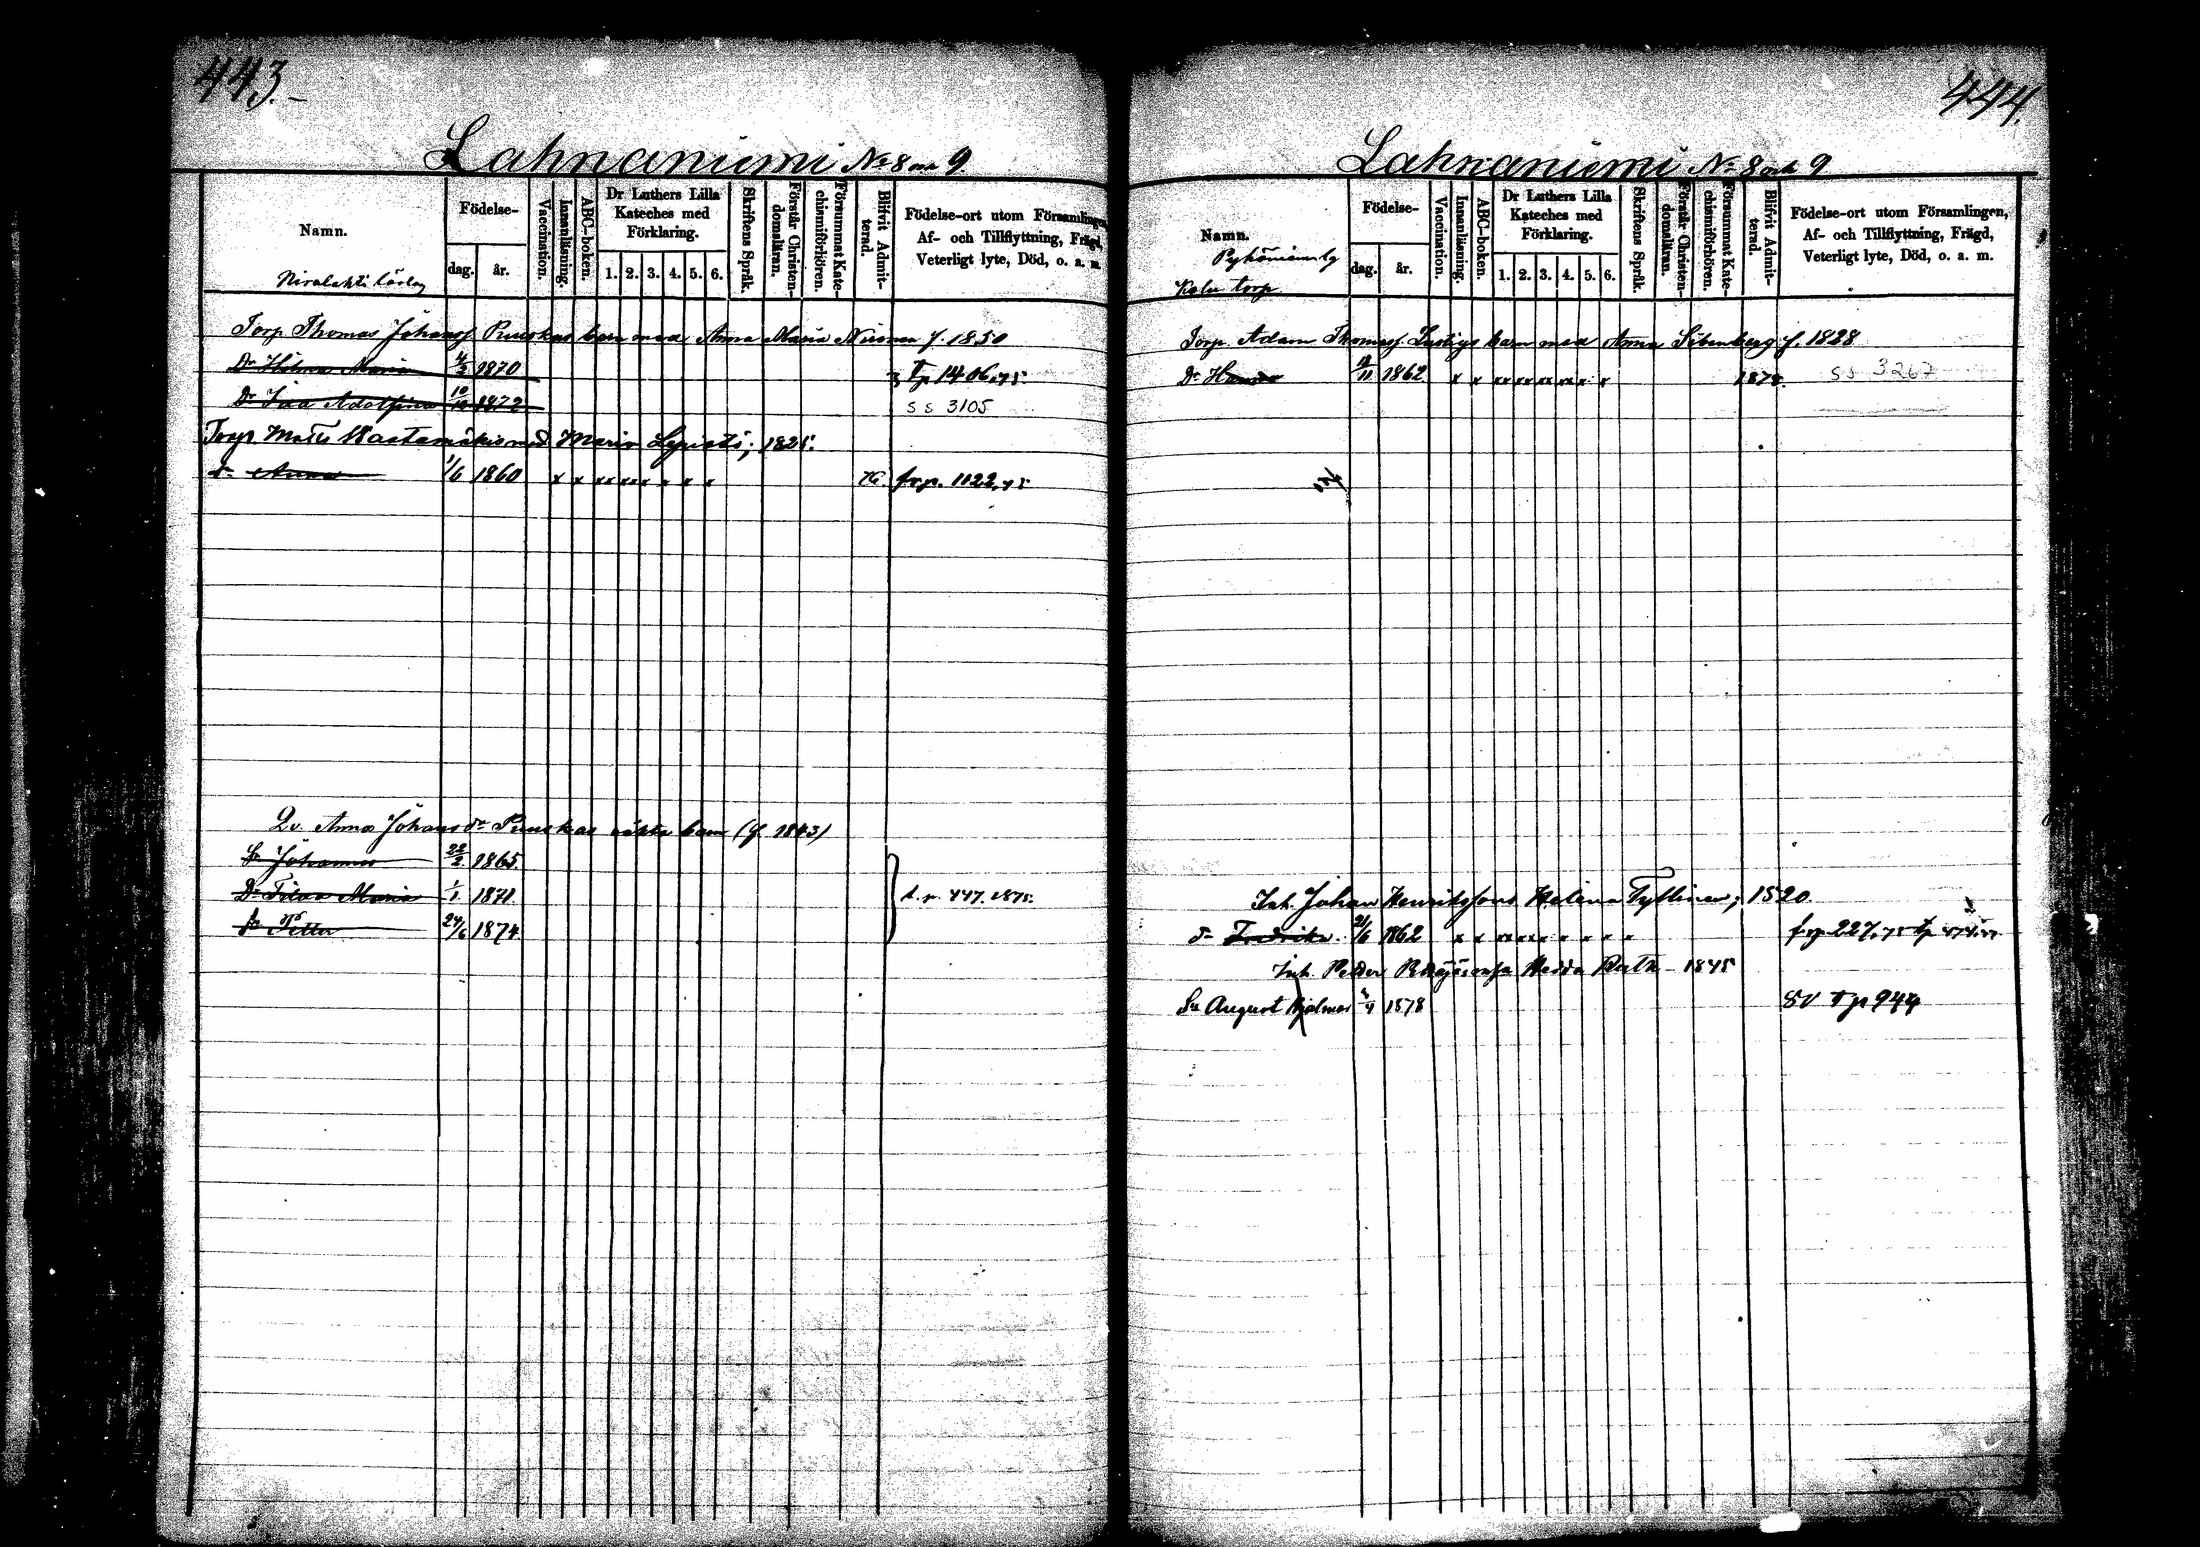 443.
Lahnaniemi No 8 och 9.
Namn.
Födelse-
dag.
år.
Vaccination.
Innanläsning.
ABC-boken.
Dr Luthers Lilla
Kateches med
Förklaring.
1. 2. 3. 4. 5. 6.
Skriftens Språk.
Förstår Christen-
domsläran.
Försummat Kate-
chismiförhören.
Blifvit Admit-
terad.
Födelse-ort utom Församlingen,
Af- och Tillflyttning, Frägd,
Veterligt lyte, Död, o. a. m.
Torp Thomas Johanss. Punskas barn med Anna Maria f. 1850
Dr Hilma Maria 4/3 1870 Tp 1406,75.
Dr Iida Adolfina 10/12 1872 SS 3105
Torp. Matts med Maria Lepistö; 1825.
dr Anna 1/6 1860 x x xx xx x x x x 76 frp. 1122,75
Qv. Anna Johansdr Punskas barn (f. 1843)
Sn Johannes 22/2 1865
Dr Maria 1/1 1871 t.p. 447. 1875.
Sn Petter 24/6 1874
444.
Lahnaniemi No 8 och 9
Namn.
Torp
Födelse-
dag.
år.
Vaccination.
Innanläsning.
ABC-boken.
Dr Luthers Lilla
Kateches med
Förklaring.
1. 2. 3. 4. 5. 6.
Skriftens Språk.
Förstår Christen-
domsläran.
Försummat Kate-
chismiförhören.
Blifvit Admit-
terad.
Födelse-ort utom Församlingen,
Af- och Tillflyttning, Frägd,
Veterligt lyte, Död, o. a. m.
Torp. Adam Thomass. barn med Anna f. 1828
Dr Handa 11 1862 x x xx xx xx xx x x 1878. SS 3267
Inh. Johan Henrikssons Helena Tyllinen; 1820.
dr Fredrika. 21/6 1862 x x xx xx x x x x x frp 227,75
Inh. Petter Hedda 1845
Sn August Hjalmar 4 1878 SV Tp 944